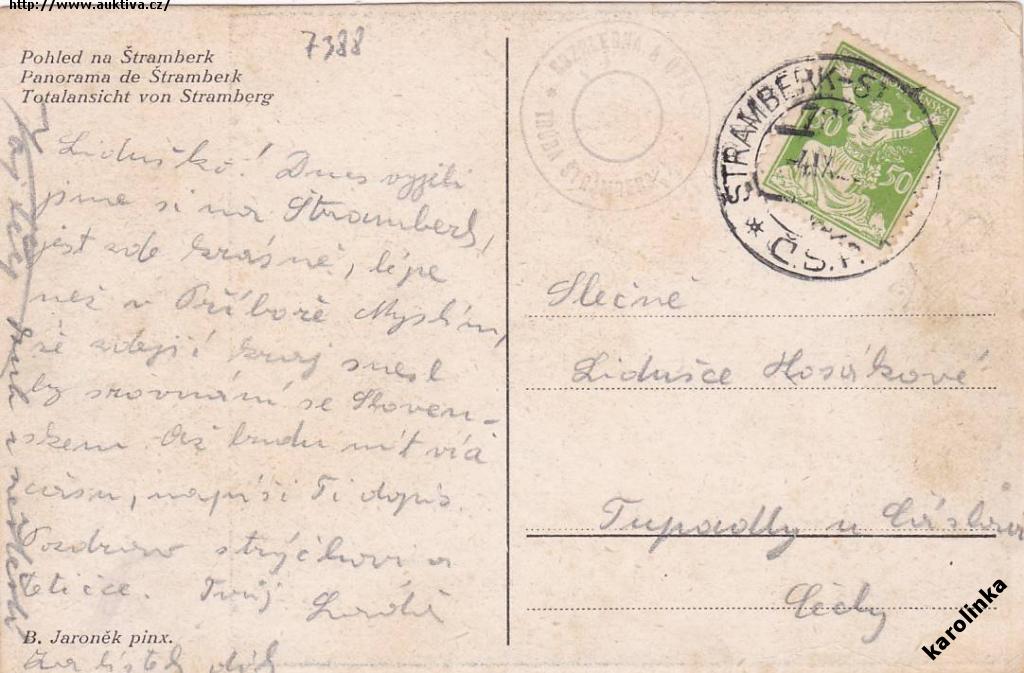 http://www.auktiva.cz/
7388
Pohled na Štramberk
Panorama de Štramberk
Totalansicht von Stramberg
Liduško! Dnes vyjeli
jsme si na Štramberk,
jest zde krásně, lépe
než v Příboře. Myslím,
že zdejší kraj snesl
by srovnání se Sloven-
skem. Až budu mít víc
času, napíši Ti dopis.
Pozdrav strýčkovi a
tetičce. Tvůj
B. Jaroněk pinx.
Za lístek
ŠTRAMBERK
Č.S.P.
50
50
Slečně
Lidušce Hosákové
Tupadly u Čáslavi
Čechy
karolinka